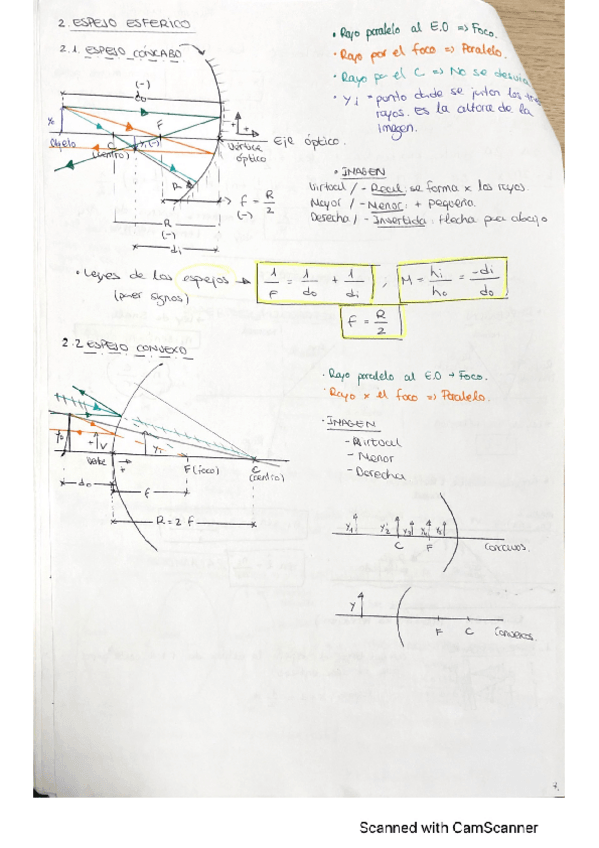 2. ESPEJO ESFERICO
2.1. ESPEJO CÓNCABO
(-)
do
F
C
(centro)
Objeto
Vértice
óptico
Eje óptico.
R
f = R/2
(-)
R
(-)
di
• Rayo paralelo al E.O => Foco.
• Rayo por el foco => Paralelo.
• Rayo por el C => No se desvía
• Yi = punto donde se juntan los tres
rayos. es la altura de la
imagen.
• IMAGEN
Virtual / - Real: se forma x los rayos.
Mayor / - Menor: + pequeña.
Derecha / - Invertida: flecha para abajo
• Leyes de los espejos → 1/F = 1/do + 1/di ; M = hi/ho = -di/do
(poner signos)
f = R/2
2.2 ESPEJO CONVEXO
• Rayo paralelo al E.O → Foco.
• Rayo x el foco => Paralelo.
• IMAGEN
- Virtual
- Menor
- Derecha
yo
V
yi
F (foco)
C
(centro)
do
f
R = 2 F
Y1 Y2 Y3 Y4 Y5
C F Concavos.
Y
F C Convexos.
Scanned with CamScanner